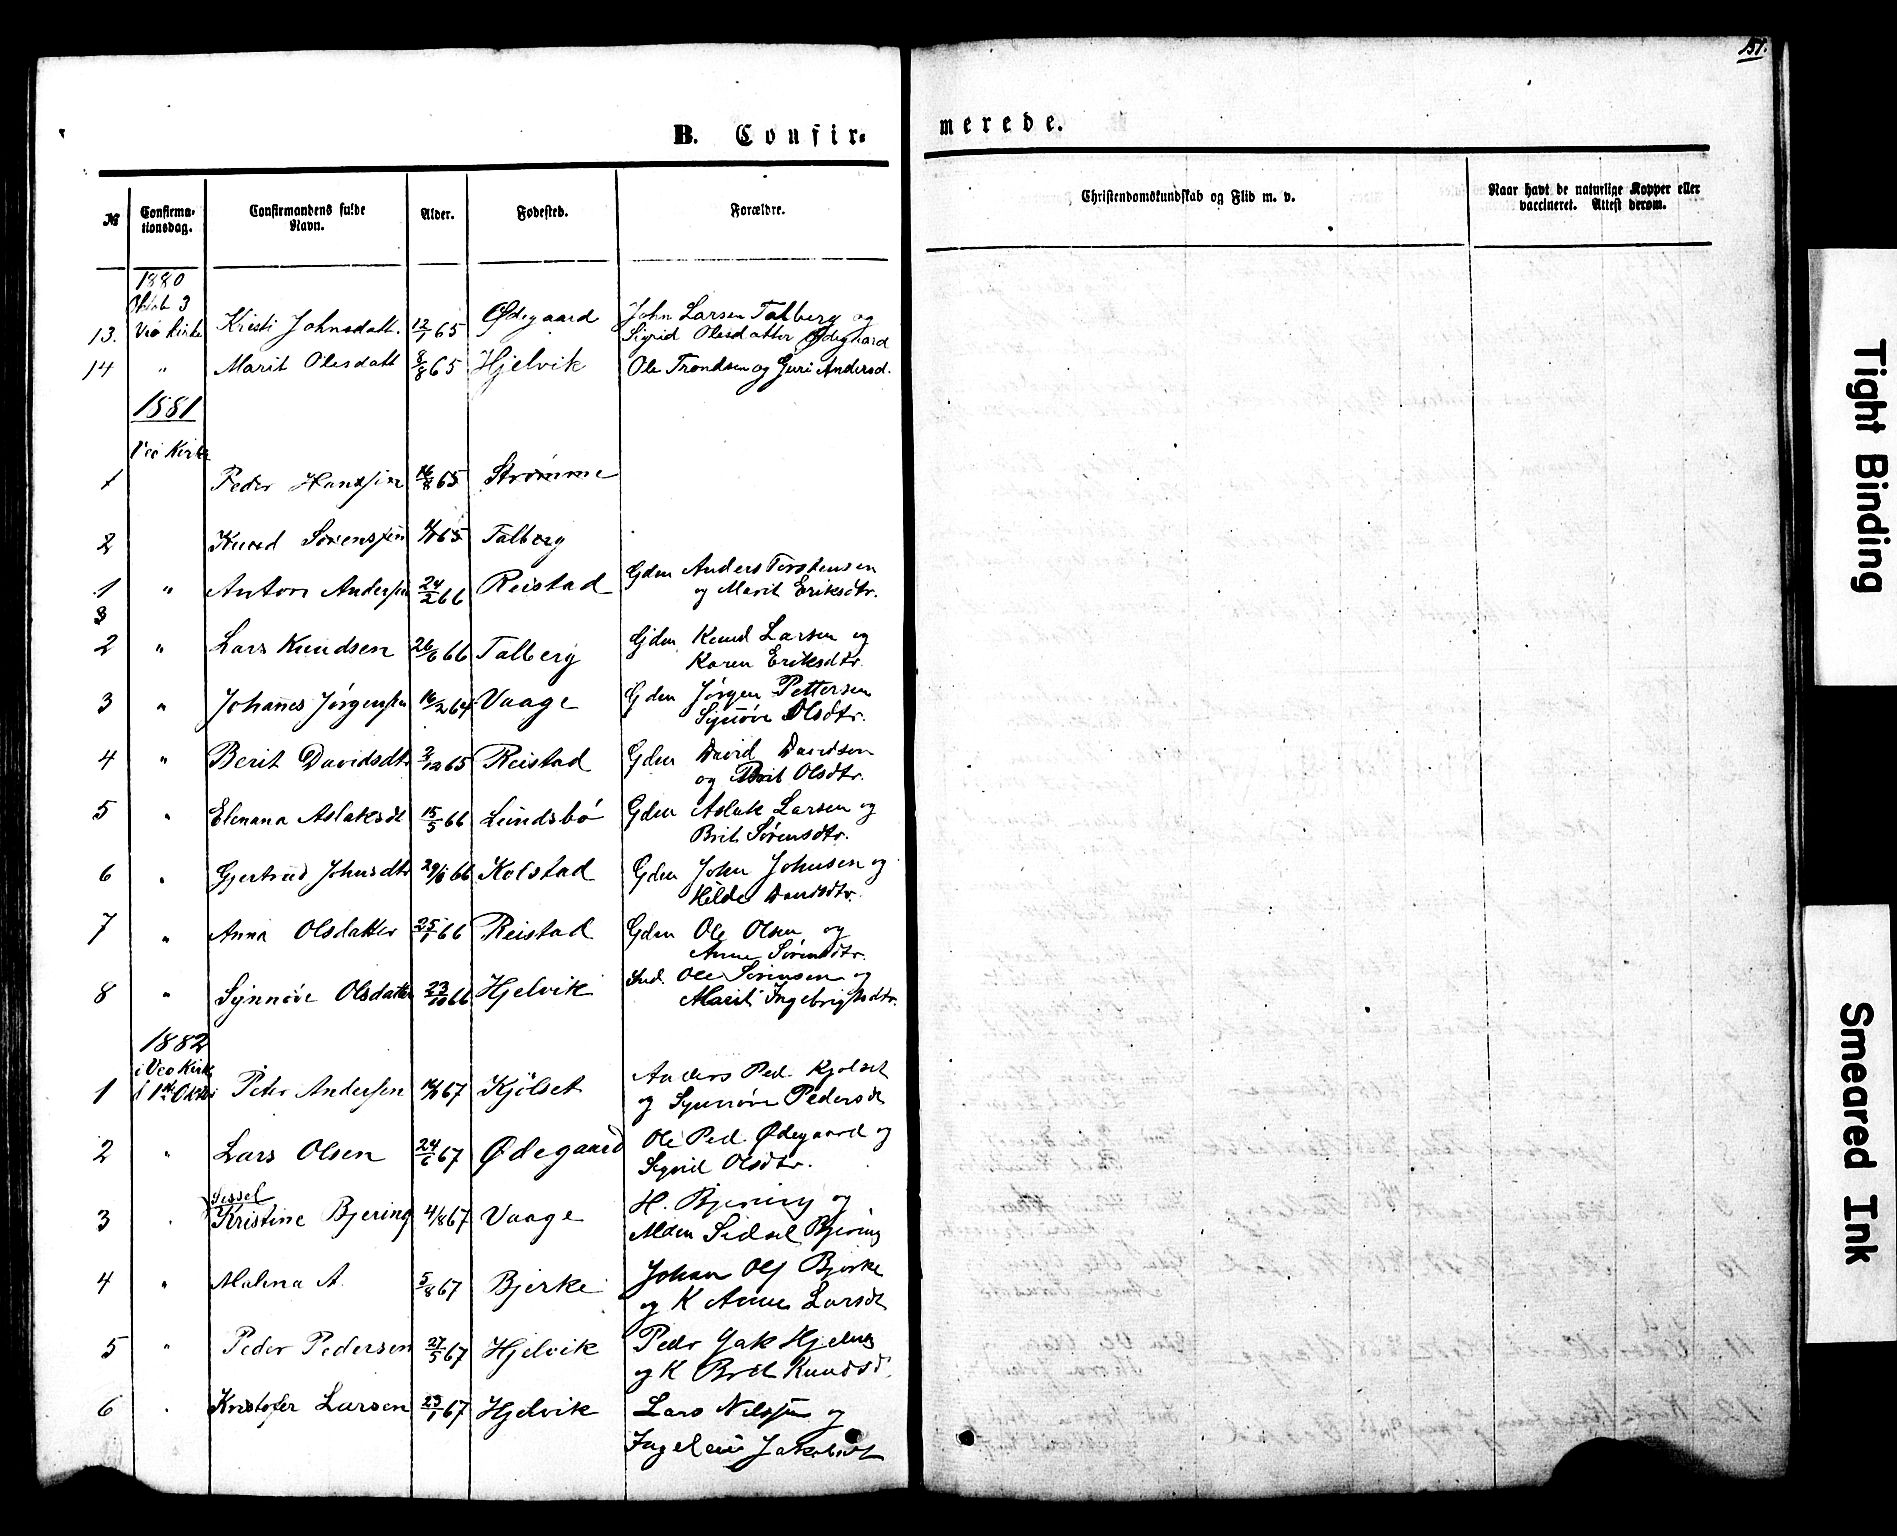 151.
B. Confir-
merede.
№ Confirma-
tionsdag. Confirmandens fulde
Navn. Alder. Fødested. Forældre.
Christendomskundskab og Flid m. v.
Naar havt de naturlige Kopper eller
vaccineret. Attest derom.
1880
Oktob 3
13. Veø Kirke Kristi Johnsdatt. 12/1 65 Ødegaard John Larsen Talberg og
Sigrid Olesdatter Ødegaard
14 " Marit Olesdatt 8/8 65 Hjelvik Ole Trondsen og Guri Andersd.
1881
Veø Kirke
1 Peder Hanssen 16/8 65 Strømme
2 Knud Sørenssen 65 Talberg
1 " Anton Anderssen 24/2 66 Reistad Gdm Anders Torstensen
og Marit Eriksdtr.
3
2 " Lars Knudsen 26/6 66 Talberg Gdm Knud Larsen og
Karen Eriksdtr.
3 " Johannes Jørgenssen 16/2 64 Vaage Gdm Jørgen Pettersen
Synøve Olsdtr.
4 " Berit Davidsdtr 2/12 65 Reistad Gdm David Davidsen
og Brit Olsdtr.
5 " Elenana Aslaksdt 15/5 66 Lundsbø Gdm Aslak Larsen og
Brit Sørensdtr.
6 " Gjertrud Johnsdtr 29/6 66 Kolstad Gdm John Johnsen og
Hilde Davidsdtr.
7 " Anna Olsdatter 25/1 66 Reistad Gdm Ole Olsen og
Anne Sørensdtr.
8 " Synnøve Olsdatter 23/10 66 Hjelvik Ind. Ole Sørensen og
Marit Ingebrigtsdtr.
1882
i Veø Kirke
d 1ste Oktbr
1 Peder Andersen 67 Kjølset Anders Ped. Kjølset
og Synnøve Pedersdt
2 " Lars Olsen 24/6 67 Ødegaard Ole Ped. Ødegaard og
Sigrid Olsdtr.
Sissel
3 " Kristine Bjering 4/8 67 Vaage H. Bjering og
Mden Sidsel Bjering
4 " Malena A. 5/8 67 Bjerke Johan Ols Bjerke
og K Anne Larsdt
5 " Peder Pedersen 27/5 67 Hjelvik Pedr Jak Hjelvig
og K Brit Knudsd.
6 " Kristofer Larsen 23/1 67 Hjelvik Lars Nilssen og
Ingeleiv Jakobsdt
Tight Binding
Smeared Ink